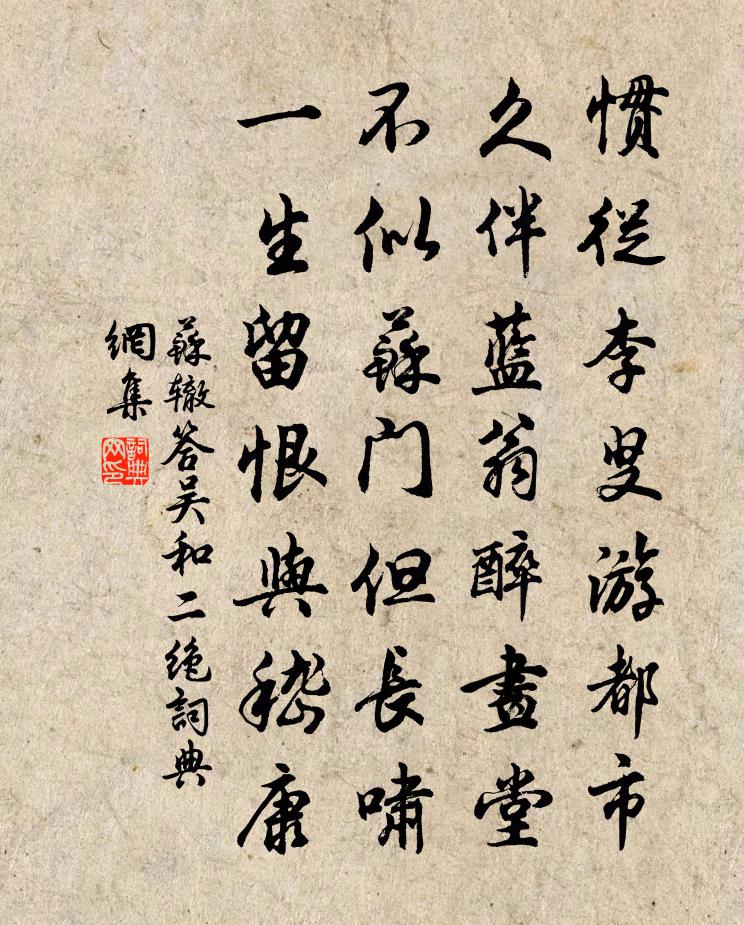 慣從李叟游都市
久伴藍翁醉畫堂
不似蘇門但長嘯
一生留恨與嵇康
蘇辙答吴和二绝詞典
網集
詞典
网印